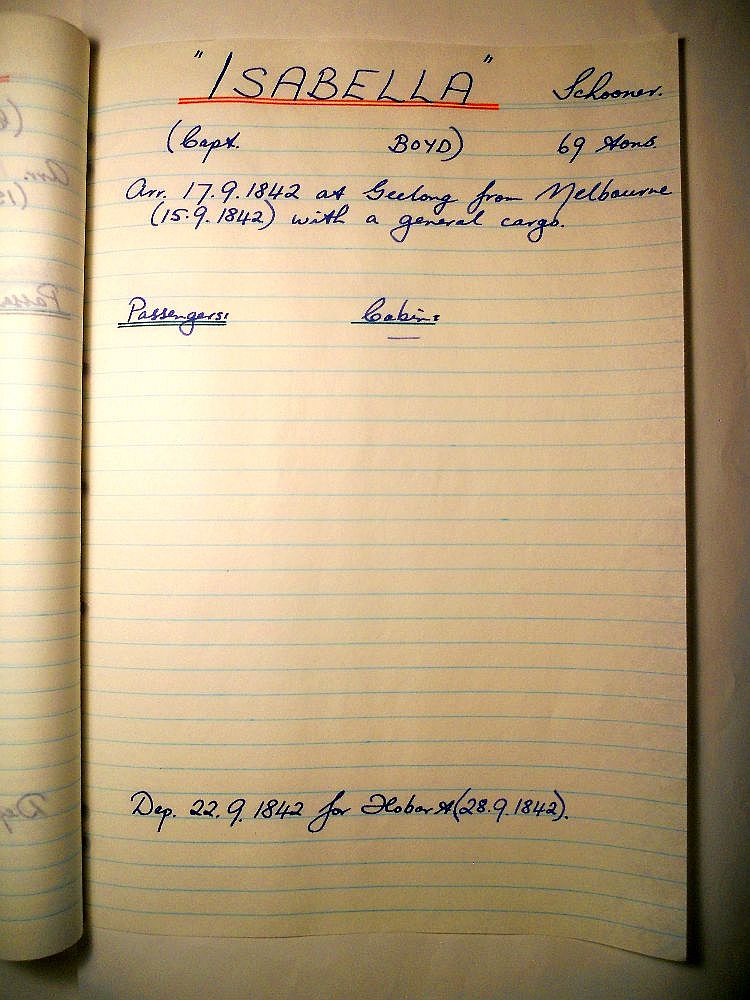 "ISABELLA" Schooner.
(Capt. BOYD) 69 tons
Arr. 17.9.1842 at Geelong from Melbourne
(15.9.1842) with a general cargo.
Passengers: Cabin:
Dep. 22.9.1842 for Hobart (28.9.1842).